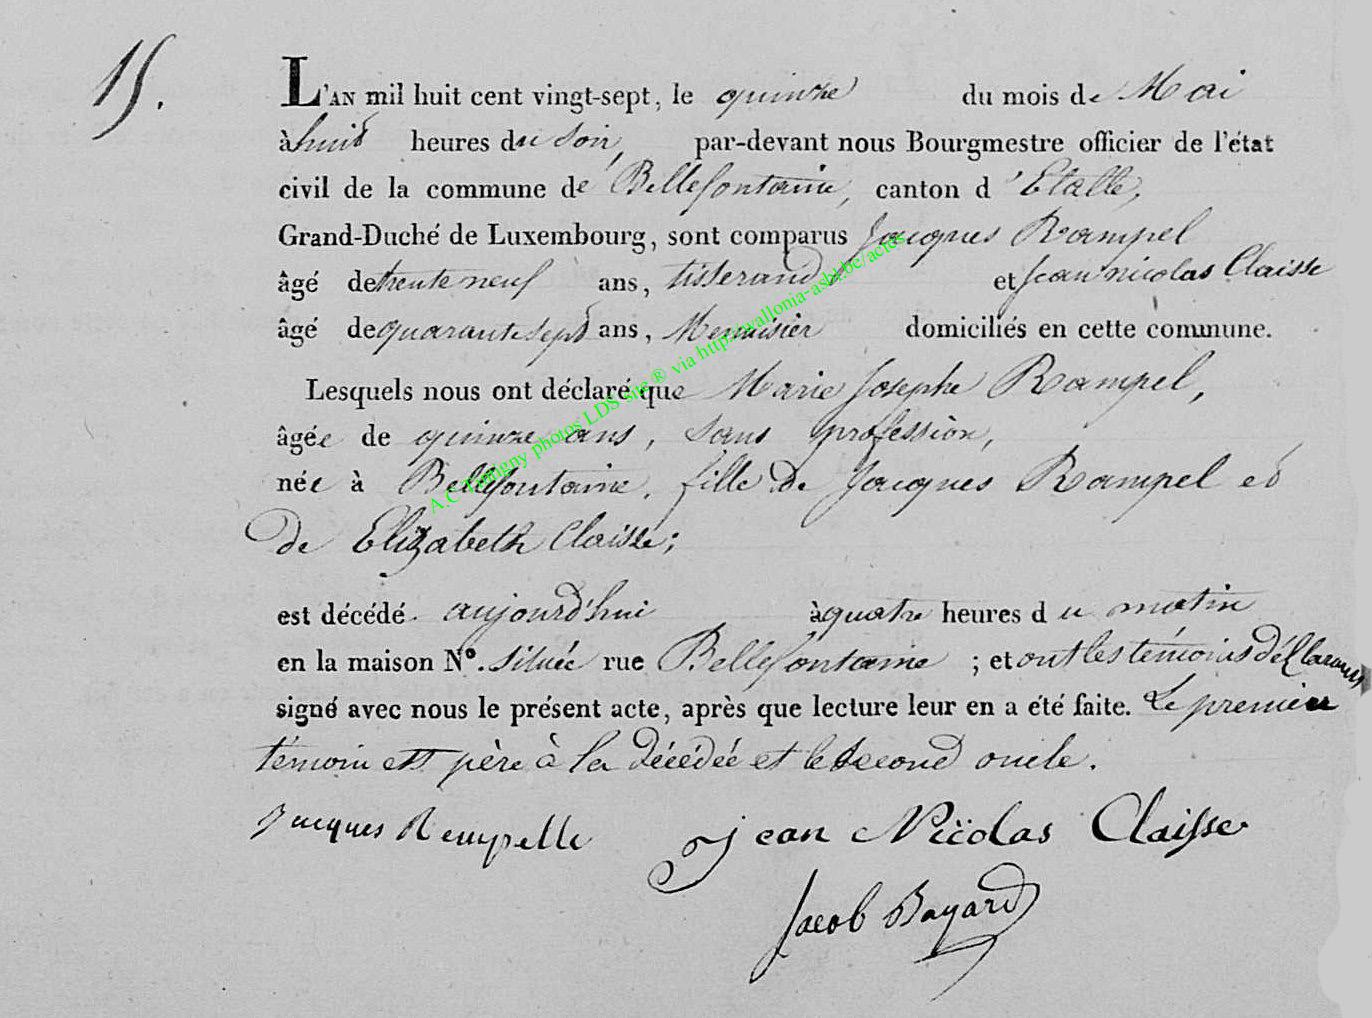 15.
L'AN mil huit cent vingt-sept, le quinze du mois de Mai
à huit heures du Soir, par-devant nous Bourgmestre officier de l'état
civil de la commune de Bellefontaine, canton d'Etalle,
Grand-Duché de Luxembourg, sont comparus Jacques Rampel
âgé de trente neuf ans, tisserand et Jean nicolas Claisse
âgé de quarante sept ans, Menuisier domiciliés en cette commune.
Lesquels nous ont déclaré que Marie Josephe Rampel,
âgée de quinze ans, sans profession,
née à Bellefontaine, fille de Jacques Rampel et
de Elizabeth Claisse;
est décédé aujourd'hui à quatre heures du matin
en la maison N°. située rue Bellefontaine ; et ont les témoins déclarans
signé avec nous le présent acte, après que lecture leur en a été faite. Le premier
témoin est père à la décédée et le second oncle.
Jacques Rempelle Jean Nicolas Claisse
Jacob Bayard
A.C. Tintigny photos LDS site ® via http://wallonia-asbl.be/actes